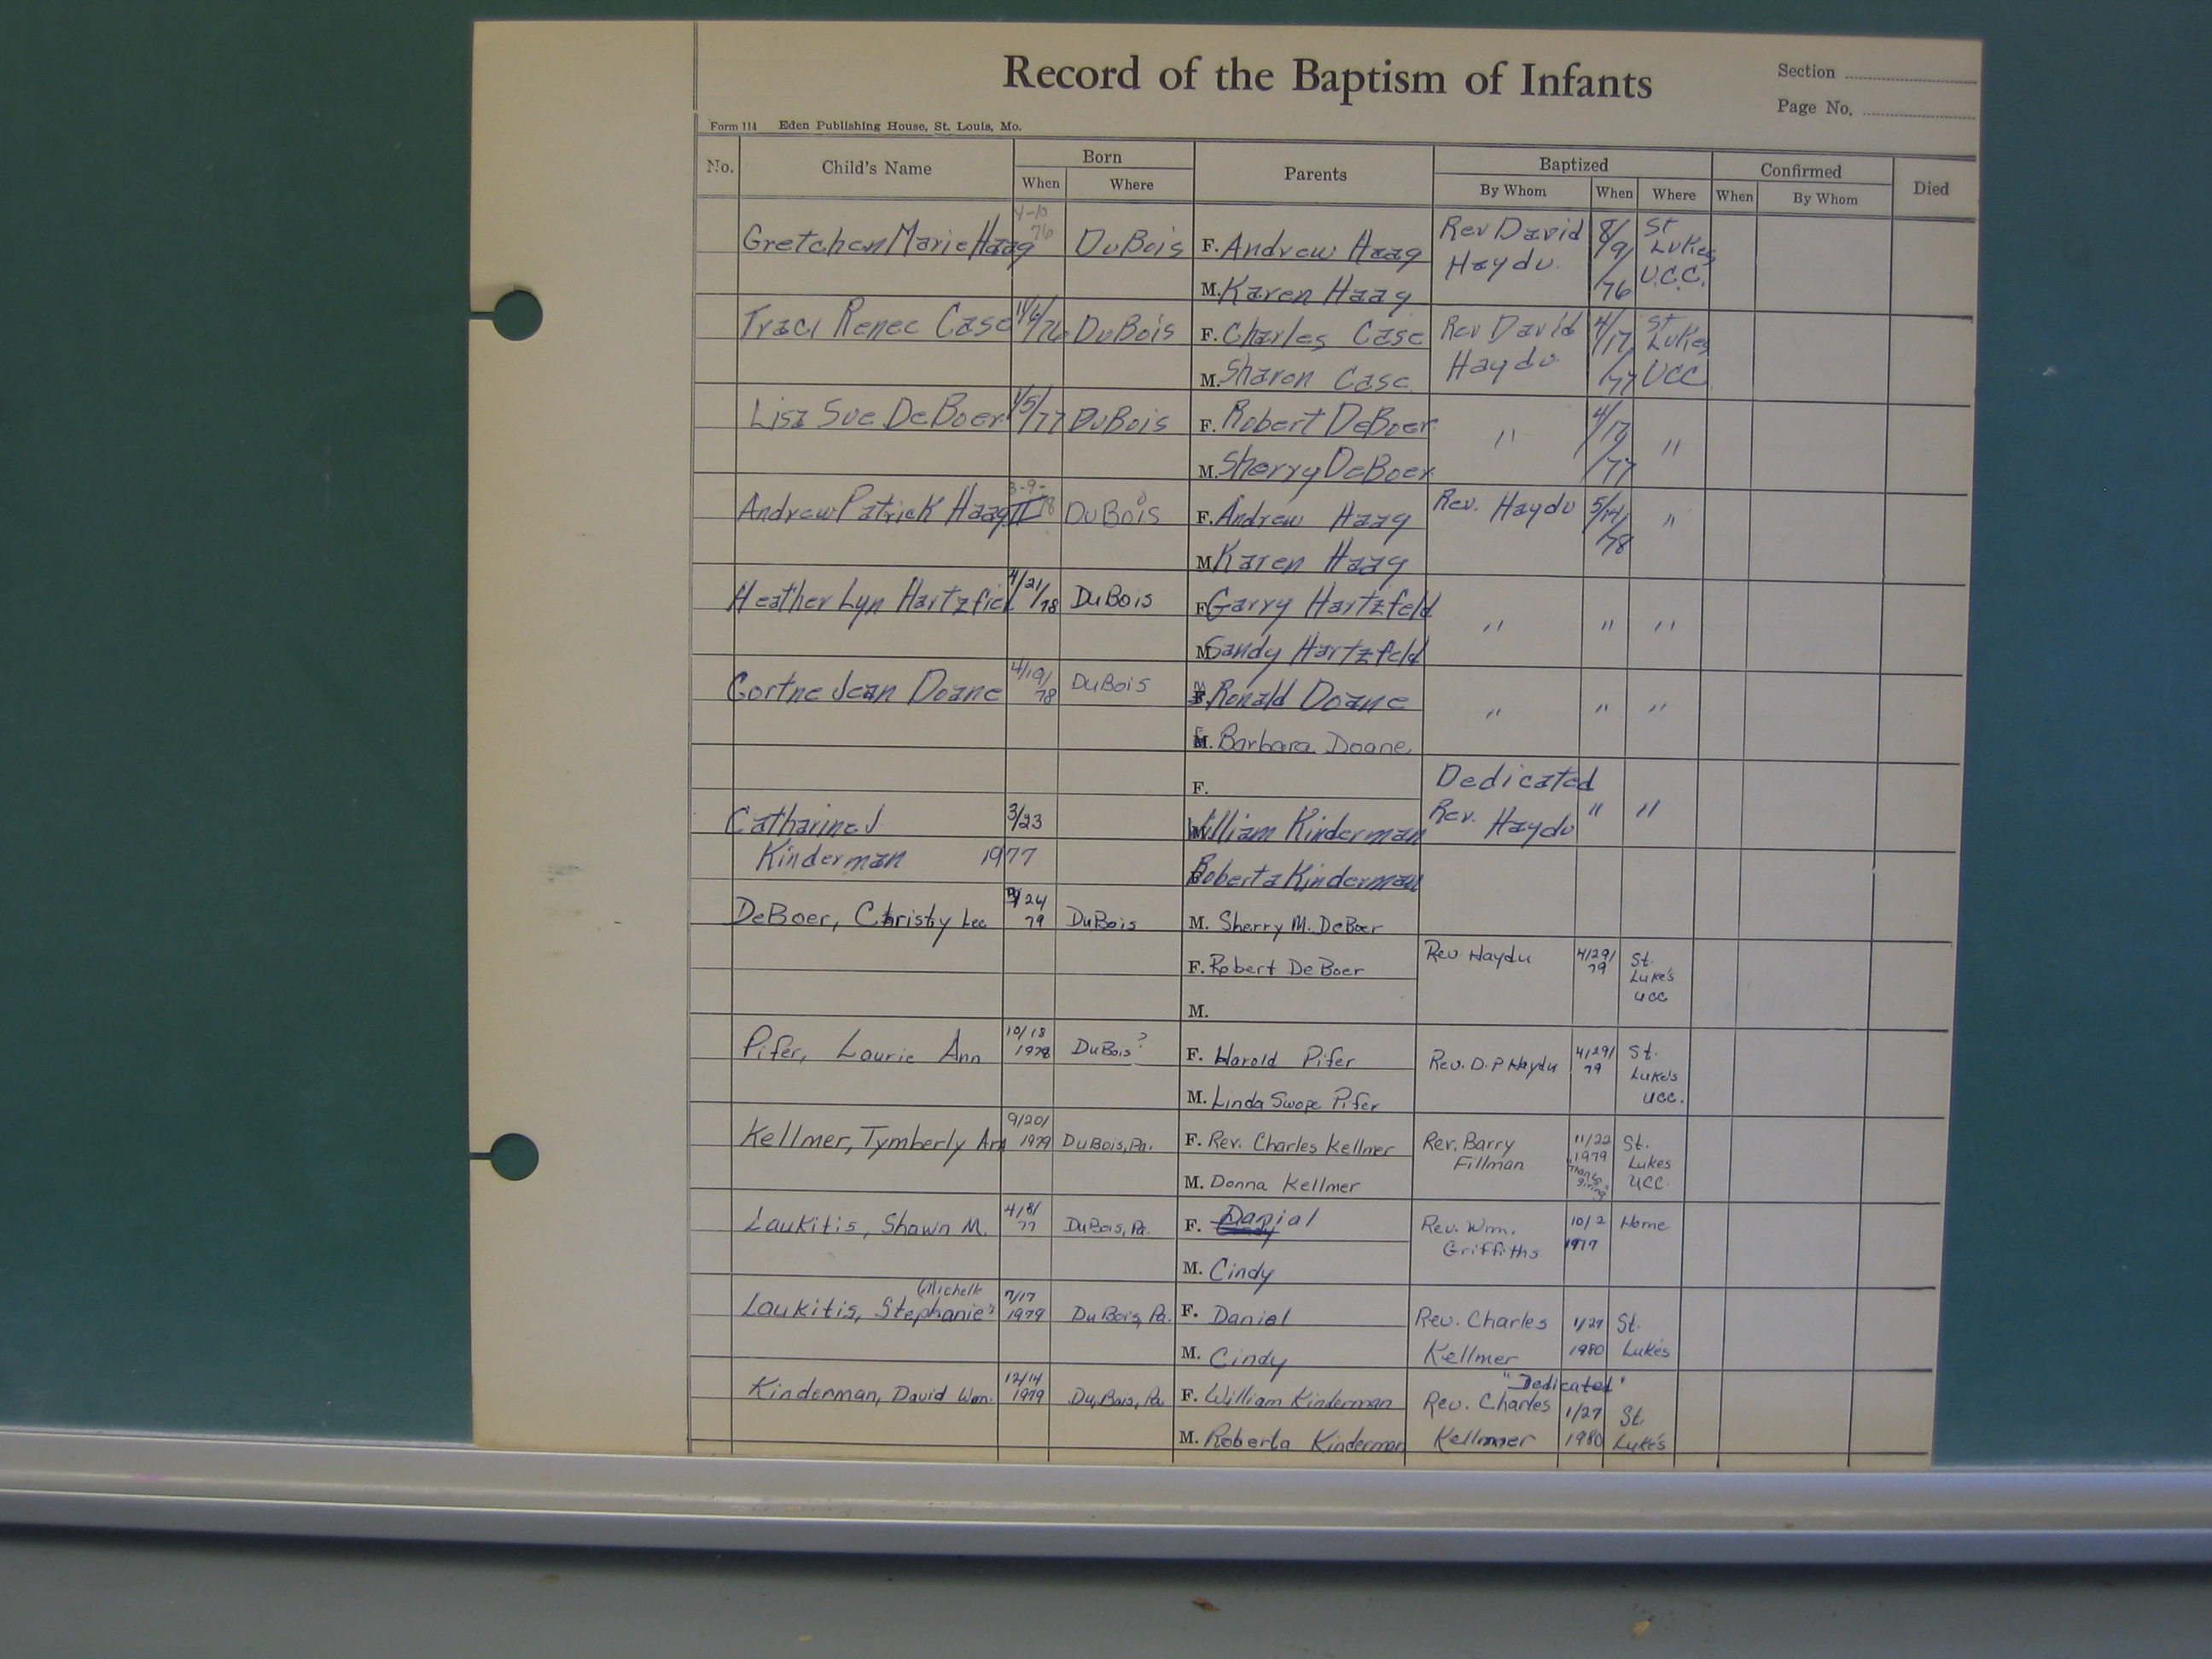 Record of the Baptism of Infants
Section
Page No.
Form 114 Eden Publishing House, St. Louis, Mo.
No. Child's Name Born Parents Baptized Confirmed Died
When Where By Whom When Where When By Whom
Gretchen Marie Haag 4-10 76 DuBois F. Andrew Haag Rev David Haydu 8/9/76 St Lukes U.C.C.
M. Karen Haag
Traci Renee Case 11/6/76 DuBois F. Charles Case Rev David Haydu 4/17/77 St Lukes UCC
M. Sharon Case
Lisa Sue DeBoer 1/5/77 DuBois F. Robert DeBoer " 4/17/77 "
M. Sherry DeBoer
Andrew Patrick Haag II 3-9-78 DuBois F. Andrew Haag Rev. Haydu 5/14/78 "
M. Karen Haag
Heather Lyn Hartzfiel 4/21/78 DuBois F. Garry Hartzfeld " " "
M. Sandy Hartzfeld
Cortne Jean Doane 4/19/78 DuBois M. Ronald Doane " " "
F. Barbara Doane
F. Dedicated
Catharine J 3/23 William Kinderman Rev. Haydu " "
Kinderman 1977 Roberta Kinderman
DeBoer, Christy Lee 24 79 DuBois M. Sherry M. DeBoer
F. Robert DeBoer Rev. Haydu 4/29/79 St. Luke's UCC
M.
Pifer, Laurie Ann 10/18 1978 DuBois? F. Harold Pifer Rev. D. P Haydu 4/29/79 St. Luke's UCC.
M. Linda Swope Pifer
Kellmer, Tymberly Ann 9/20/1979 DuBois, Pa. F. Rev. Charles Kellmer Rev. Barry Fillman 11/22 1979 "Thanksgiving" St. Lukes UCC
M. Donna Kellmer
Laukitis, Shawn M. 4/8/77 DuBois, Pa. F. Danial Rev. Wm. Griffiths 10/2 1977 Home
M. Cindy
Michelle
Laukitis, Stephanie 7/17 1979 DuBois, Pa. F. Daniel Rev. Charles Kellmer 1/27 1980 St. Luke's
M. Cindy
"Dedicated"
Kinderman, David Wm. 12/14 1979 DuBois, Pa. F. William Kinderman Rev. Charles Kellmer 1/27 1980 St. Luke's
M. Roberta Kinderman